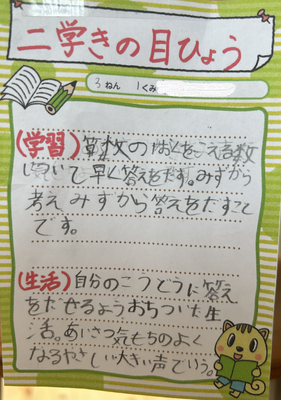 二学きの目ひょう
3ねん 1くみ
(学習) 算数の をこえる数
早く答えをだす。みずから
考えみずから答えをだすこと
です。
(生活) 自分のこうどうに答え
をだせるようおちついた生
活。あいさつ気もちのよく
なるやさしい大きい声でいう。